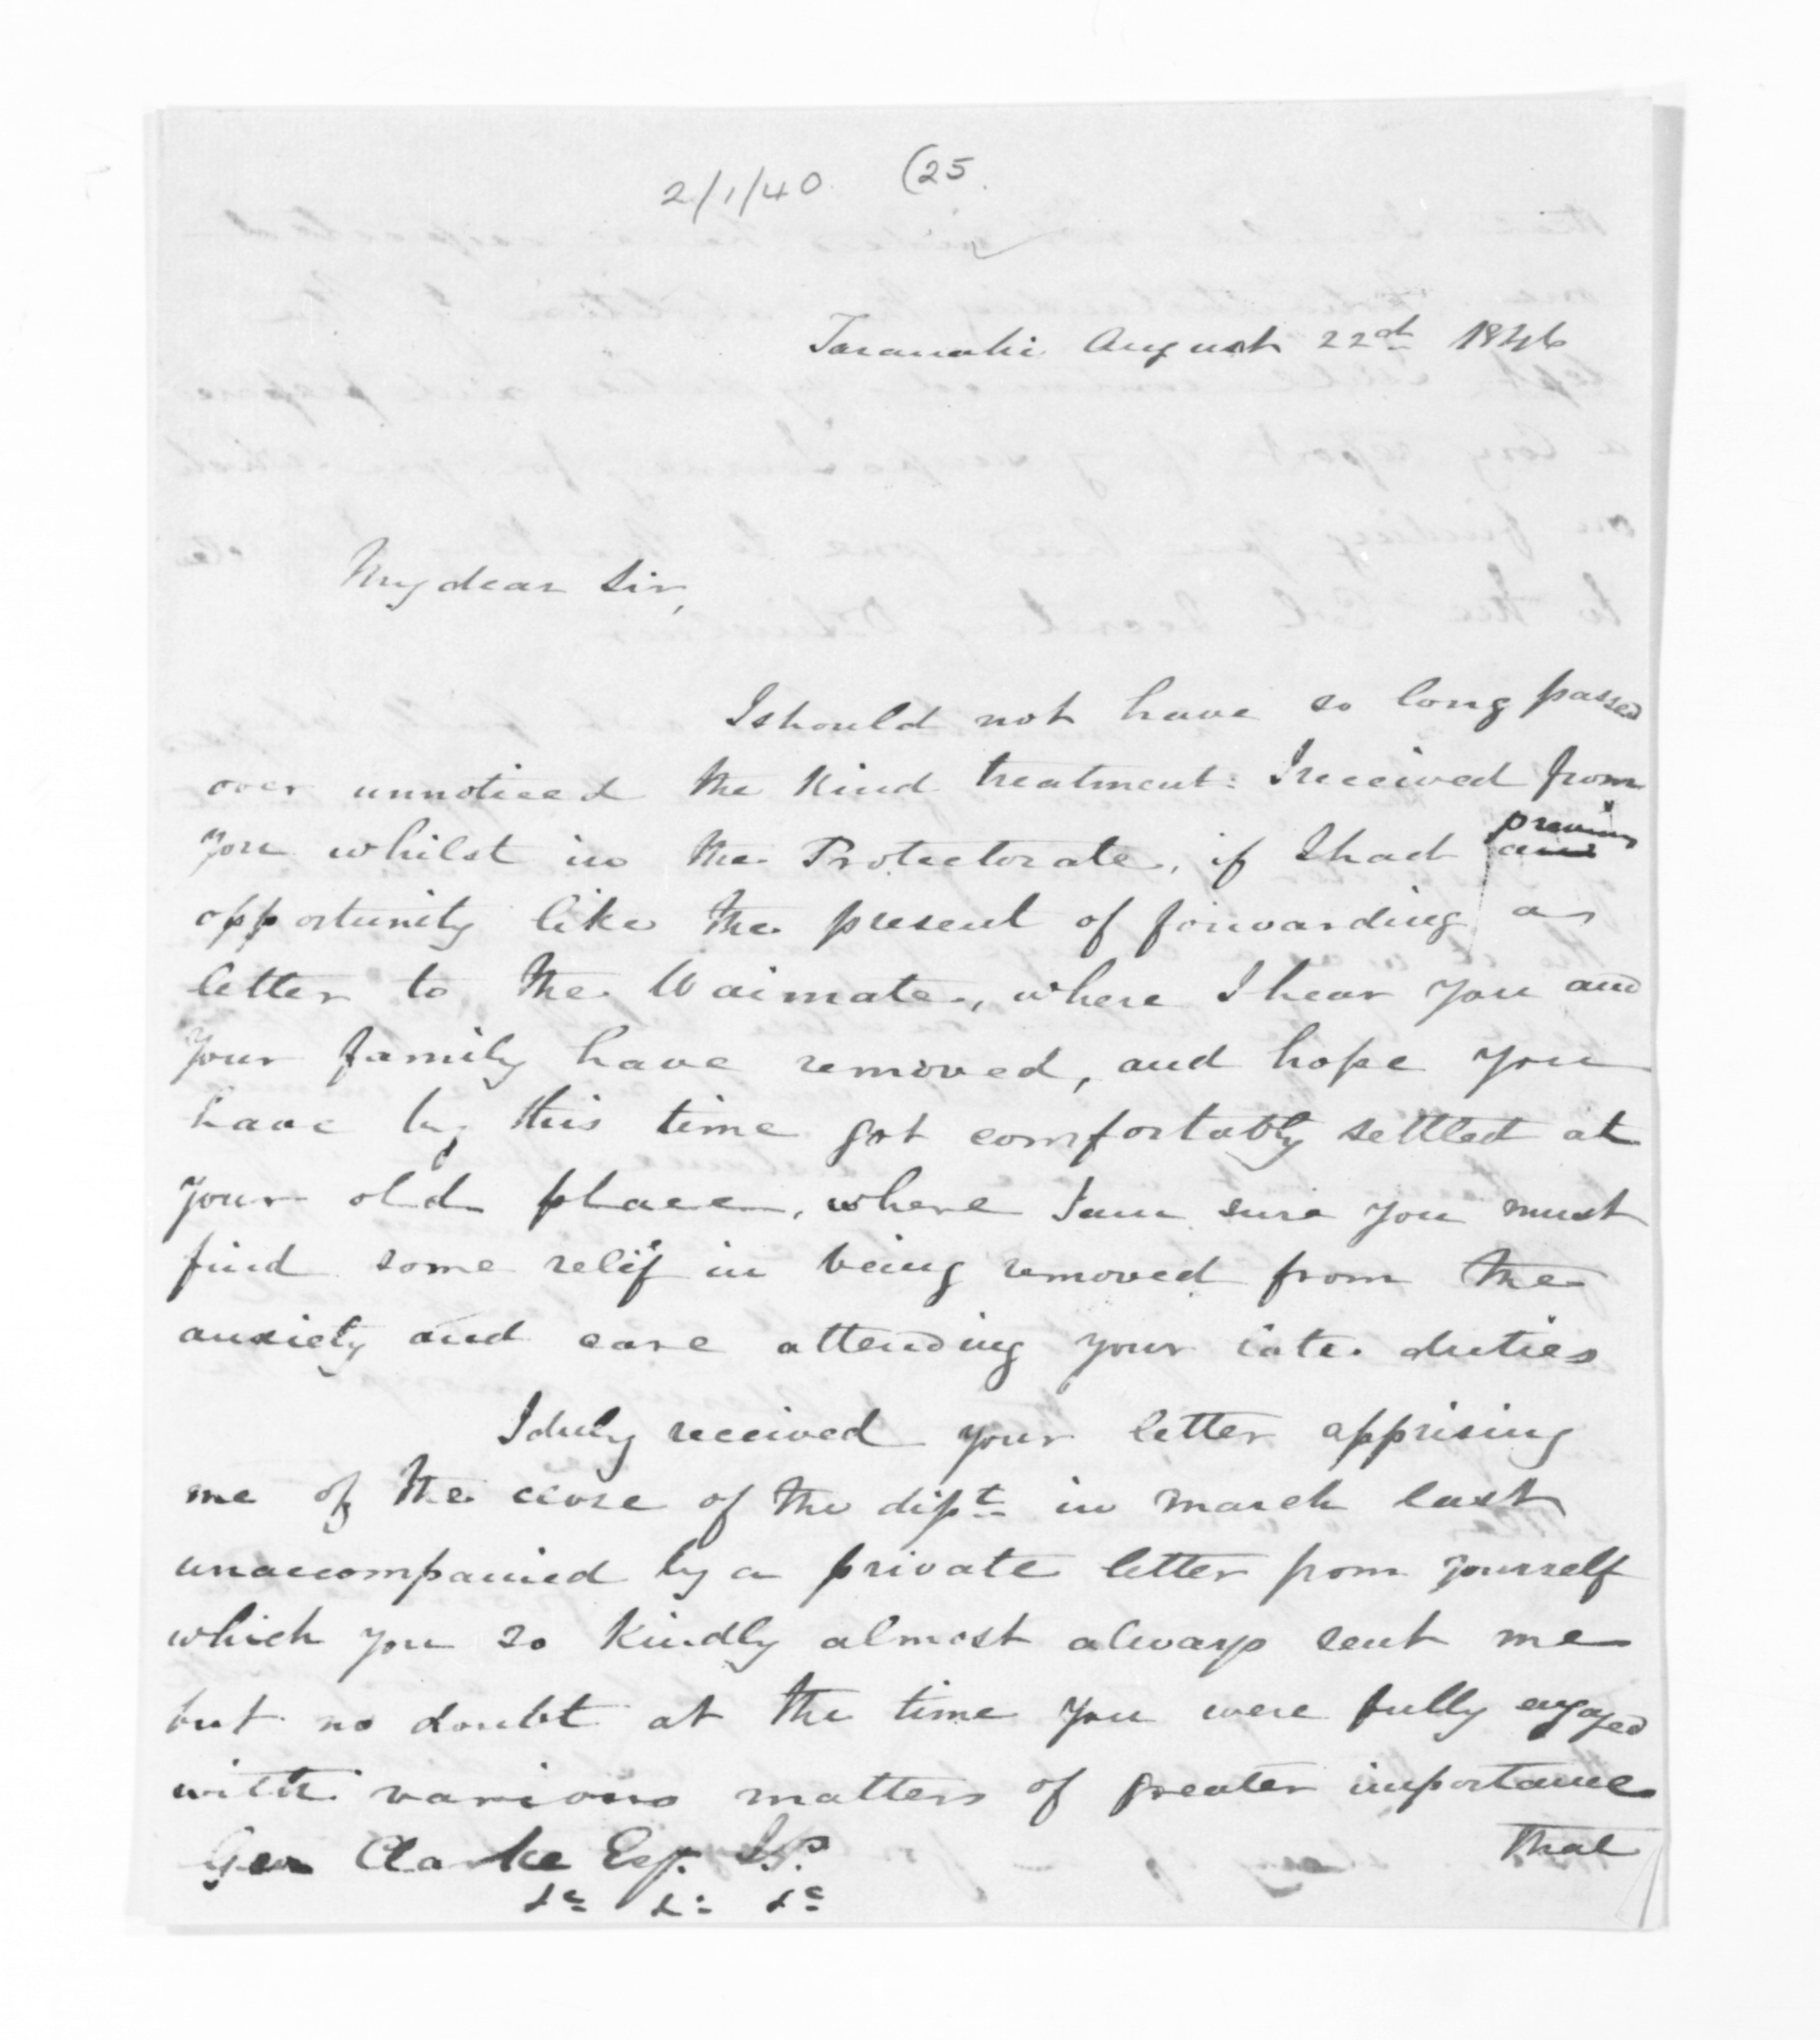 2/1/40 (25.
Taranaki August 22nd 1846
My dear Sir,
I should not have so long passed
over unnoticed the kind treatment I received from
you whilst in the Protectorate, if I had previous
opportunity like the present of forwarding a
letter to the Waimate, where I hear you and
your family have removed, and hope you
have by this time got comfortably settled at
your old place, where I am sure you must
find some relif in being removed from the
anxiety and care attending your late duties
I duly received your letter apprising
me of the close of the dipt. in March last
unaccompanied by a private letter from yourself
which you so kindly almost always sent me
but no doubt at the time you were fully engaged
with various matters of greater importance
Geo Clarke Esq. J.P. that
&c &c &c